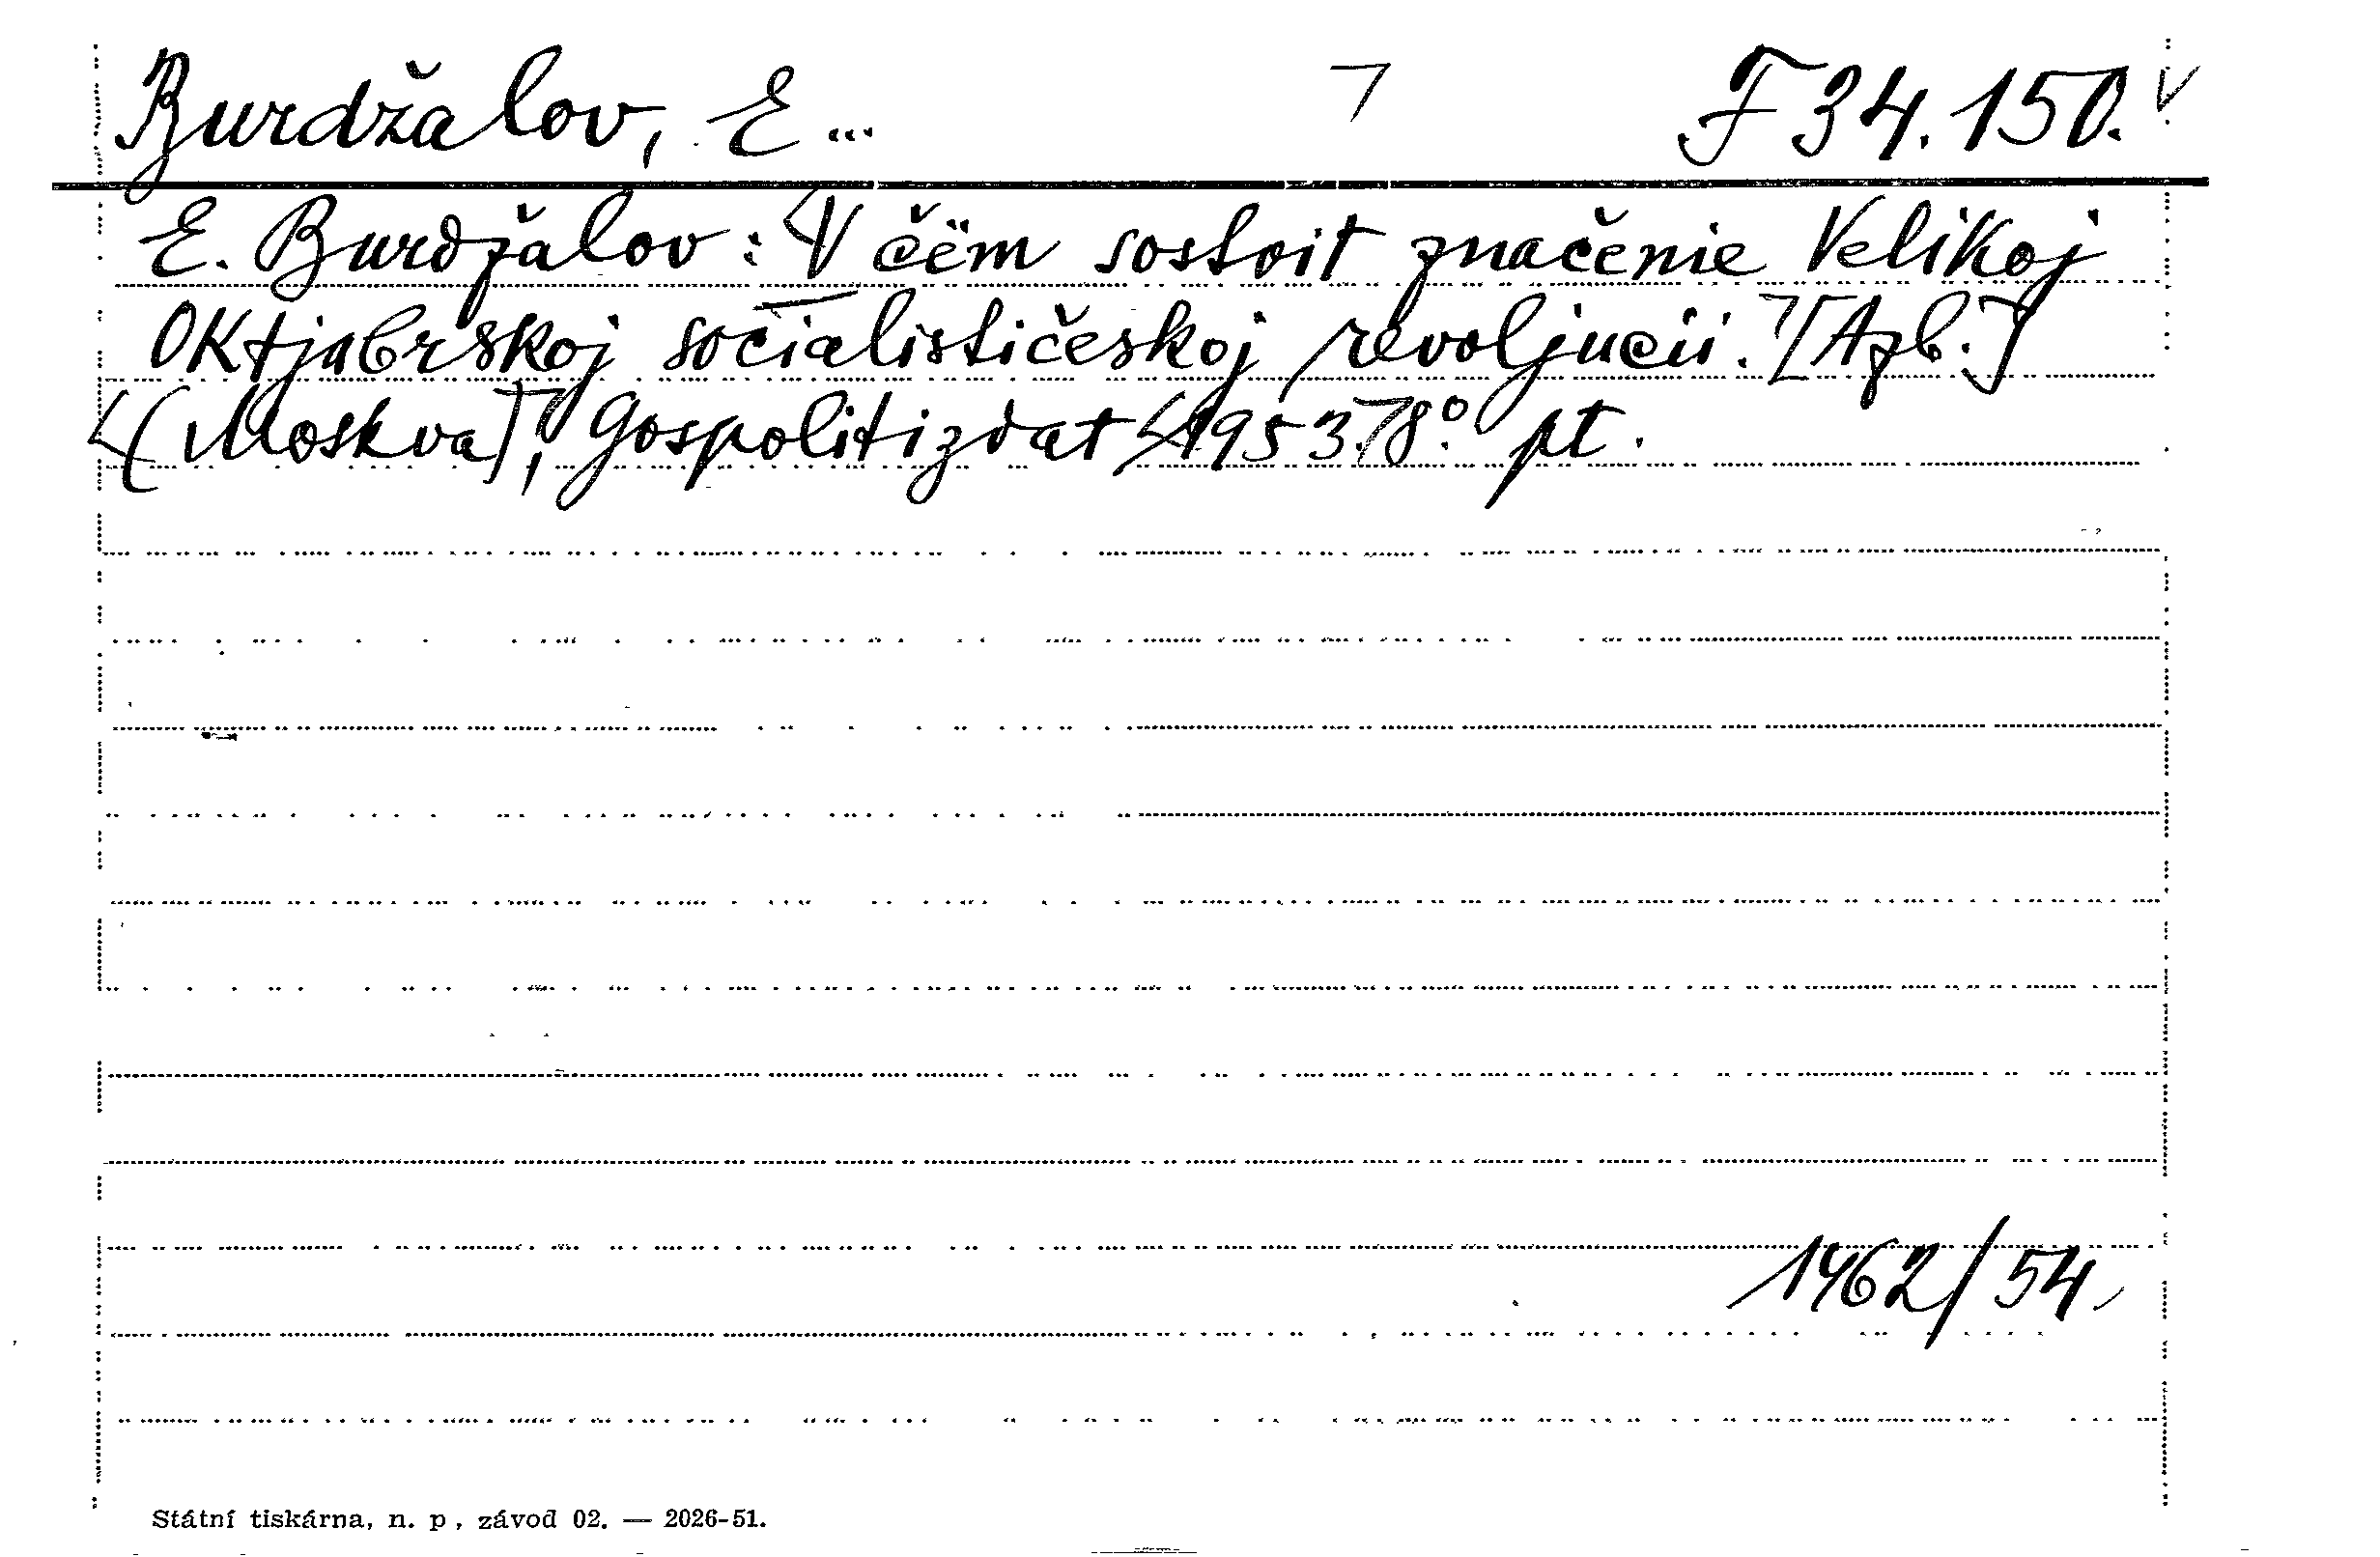 Burdžalov, E... F 34.150.
E. Burdžalov: V čëm sostoit značenie Velikoj
Oktjabrskoj socialističeskoj revoljucii. [Azb.]
(Moskva), Gospolitizdat 1953. 8° pt.
1462/54,
Státní tiskárna, n. p, závod 02. — 2026-51.